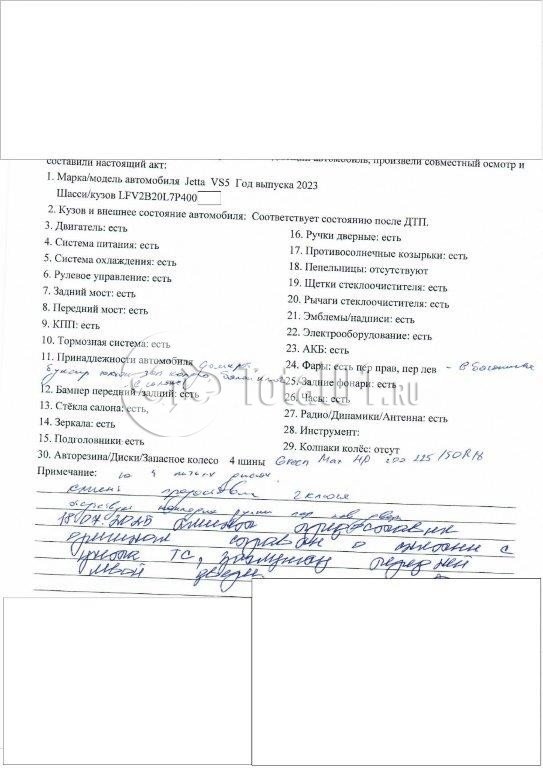 составили настоящий акт:
1. Марка/модель автомобиля Jetta VS5 Год выпуска 2023
Шасси/кузов LFV2B20L7P400
2. Кузов и внешнее состояние автомобиля: Соответствует состоянию после ДТП.
3. Двигатель: есть
4. Система питания: есть
5. Система охлаждения: есть
6. Рулевое управление: есть
7. Задний мост: есть
8. Передний мост: есть
9. КПП: есть
10. Тормозная система: есть
11. Принадлежности автомобиля домкрат
12. Бампер передний /задний: есть
13. Стёкла салона: есть,
14. Зеркала: есть
15. Подголовники: есть
16. Ручки дверные: есть
17. Противосолнечные козырьки: есть
18. Пепельницы: отсутствуют
19. Щетки стеклоочистителя: есть
20. Рычаги стеклоочистителя: есть
21. Эмблемы/надписи: есть
22. Электрооборудование: есть
23. АКБ: есть
24. Фары: есть пер прав, пер лев - в багажнике
25. Задние фонари: есть
26. Часы: есть
27. Радио/Динамики/Антенна: есть
28. Инструмент:
29. Колпаки колёс: отсут
30. Авторезина/Диски/Запасное колесо 4 шины Green Max HP 225/50R18
Примечание: 4 литых
2 ключа
18.07.2025
справки о снятии с
учета ТС,
левой двери
total01.ru